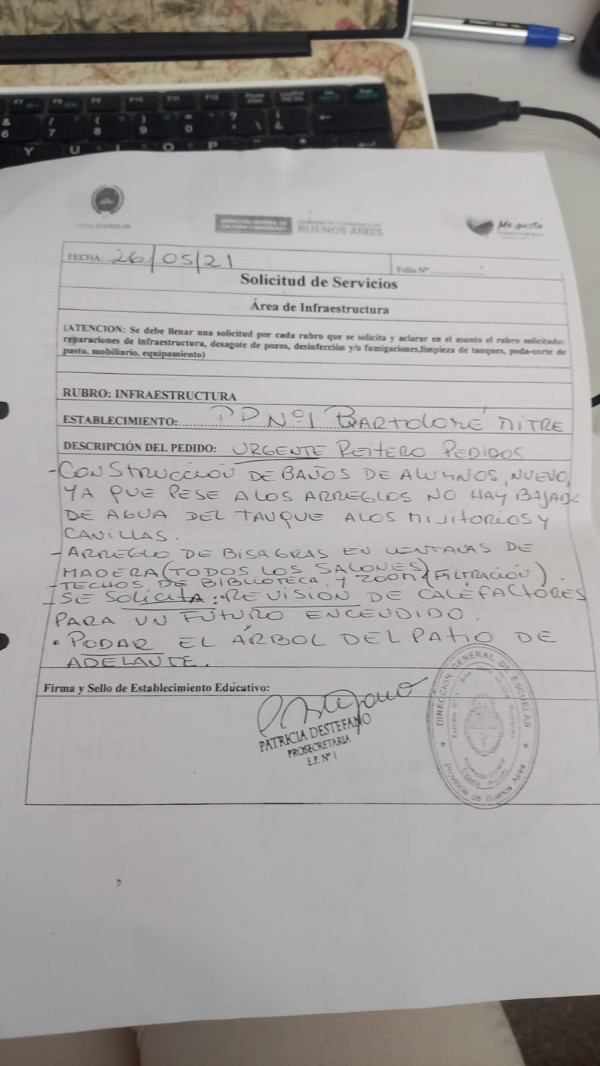 F7 F8 F9 F10 F11 F12
6 7 8 9 0
Y U I O P
CONSEJO ESCOLAR
DIRECCIÓN GENERAL DE
CULTURA Y EDUCACIÓN
BUENOS AIRES
Me gusta
FECHA: 26/05/21
Folio Nº
Solicitud de Servicios
Área de Infraestructura
(ATENCION: Se debe llenar una solicitud por cada rubro que se solicita y aclarar en el asunto el rubro solicitado:
reparaciones de infraestructura, desagote de pozos, desinfección y/o fumigaciones,limpieza de tanques, poda-corte de
pasto, mobiliario, equipamiento)
RUBRO: INFRAESTRUCTURA
ESTABLECIMIENTO: Nº1 BARTOLOMÉ MITRE
DESCRIPCIÓN DEL PEDIDO: URGENTE REITERO PEDIDOS
- CONSTRUCCIÓN DE BAÑOS DE ALUMNOS, NUEVO,
YA QUE PESE A LOS ARREGLOS NO HAY BAJADA
DE AGUA DEL TANQUE A LOS MIJITORIOS Y
CANILLAS.
- ARREGLO DE BISAGRAS EN VENTANAS DE
MADERA (TODOS LOS SALONES)
- TECHOS DE BIBLIOTECA, Y ZOOM (FILTRACIÓN).
- SE SOLICITA: REVISIÓN DE CALEFACTORES
PARA UN FUTURO ENCENDIDO.
• PODAR EL ÁRBOL DEL PATIO DE
ADELANTE.
Firma y Sello de Establecimiento Educativo:
PATRICIA DESTEFANO
PROSECRETARIA
E.P. Nº 1
DIRECCIÓN GENERAL DE ESCUELAS
Provincia de Buenos Aires